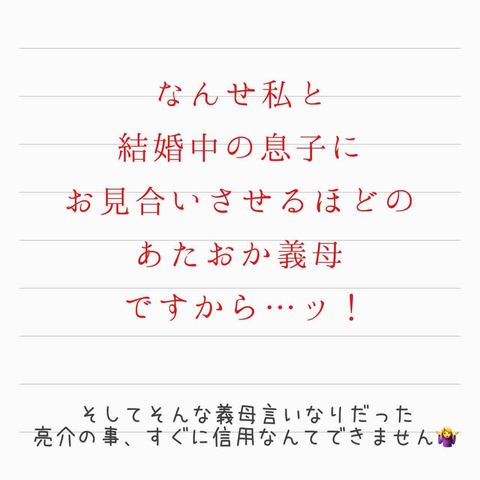 なんせ私と
結婚中の息子に
お見合いさせるほどの
あたおか義母
ですから…ッ！
そしてそんな義母言いなりだった
亮介の事、すぐに信用なんてできません🤷‍♀️